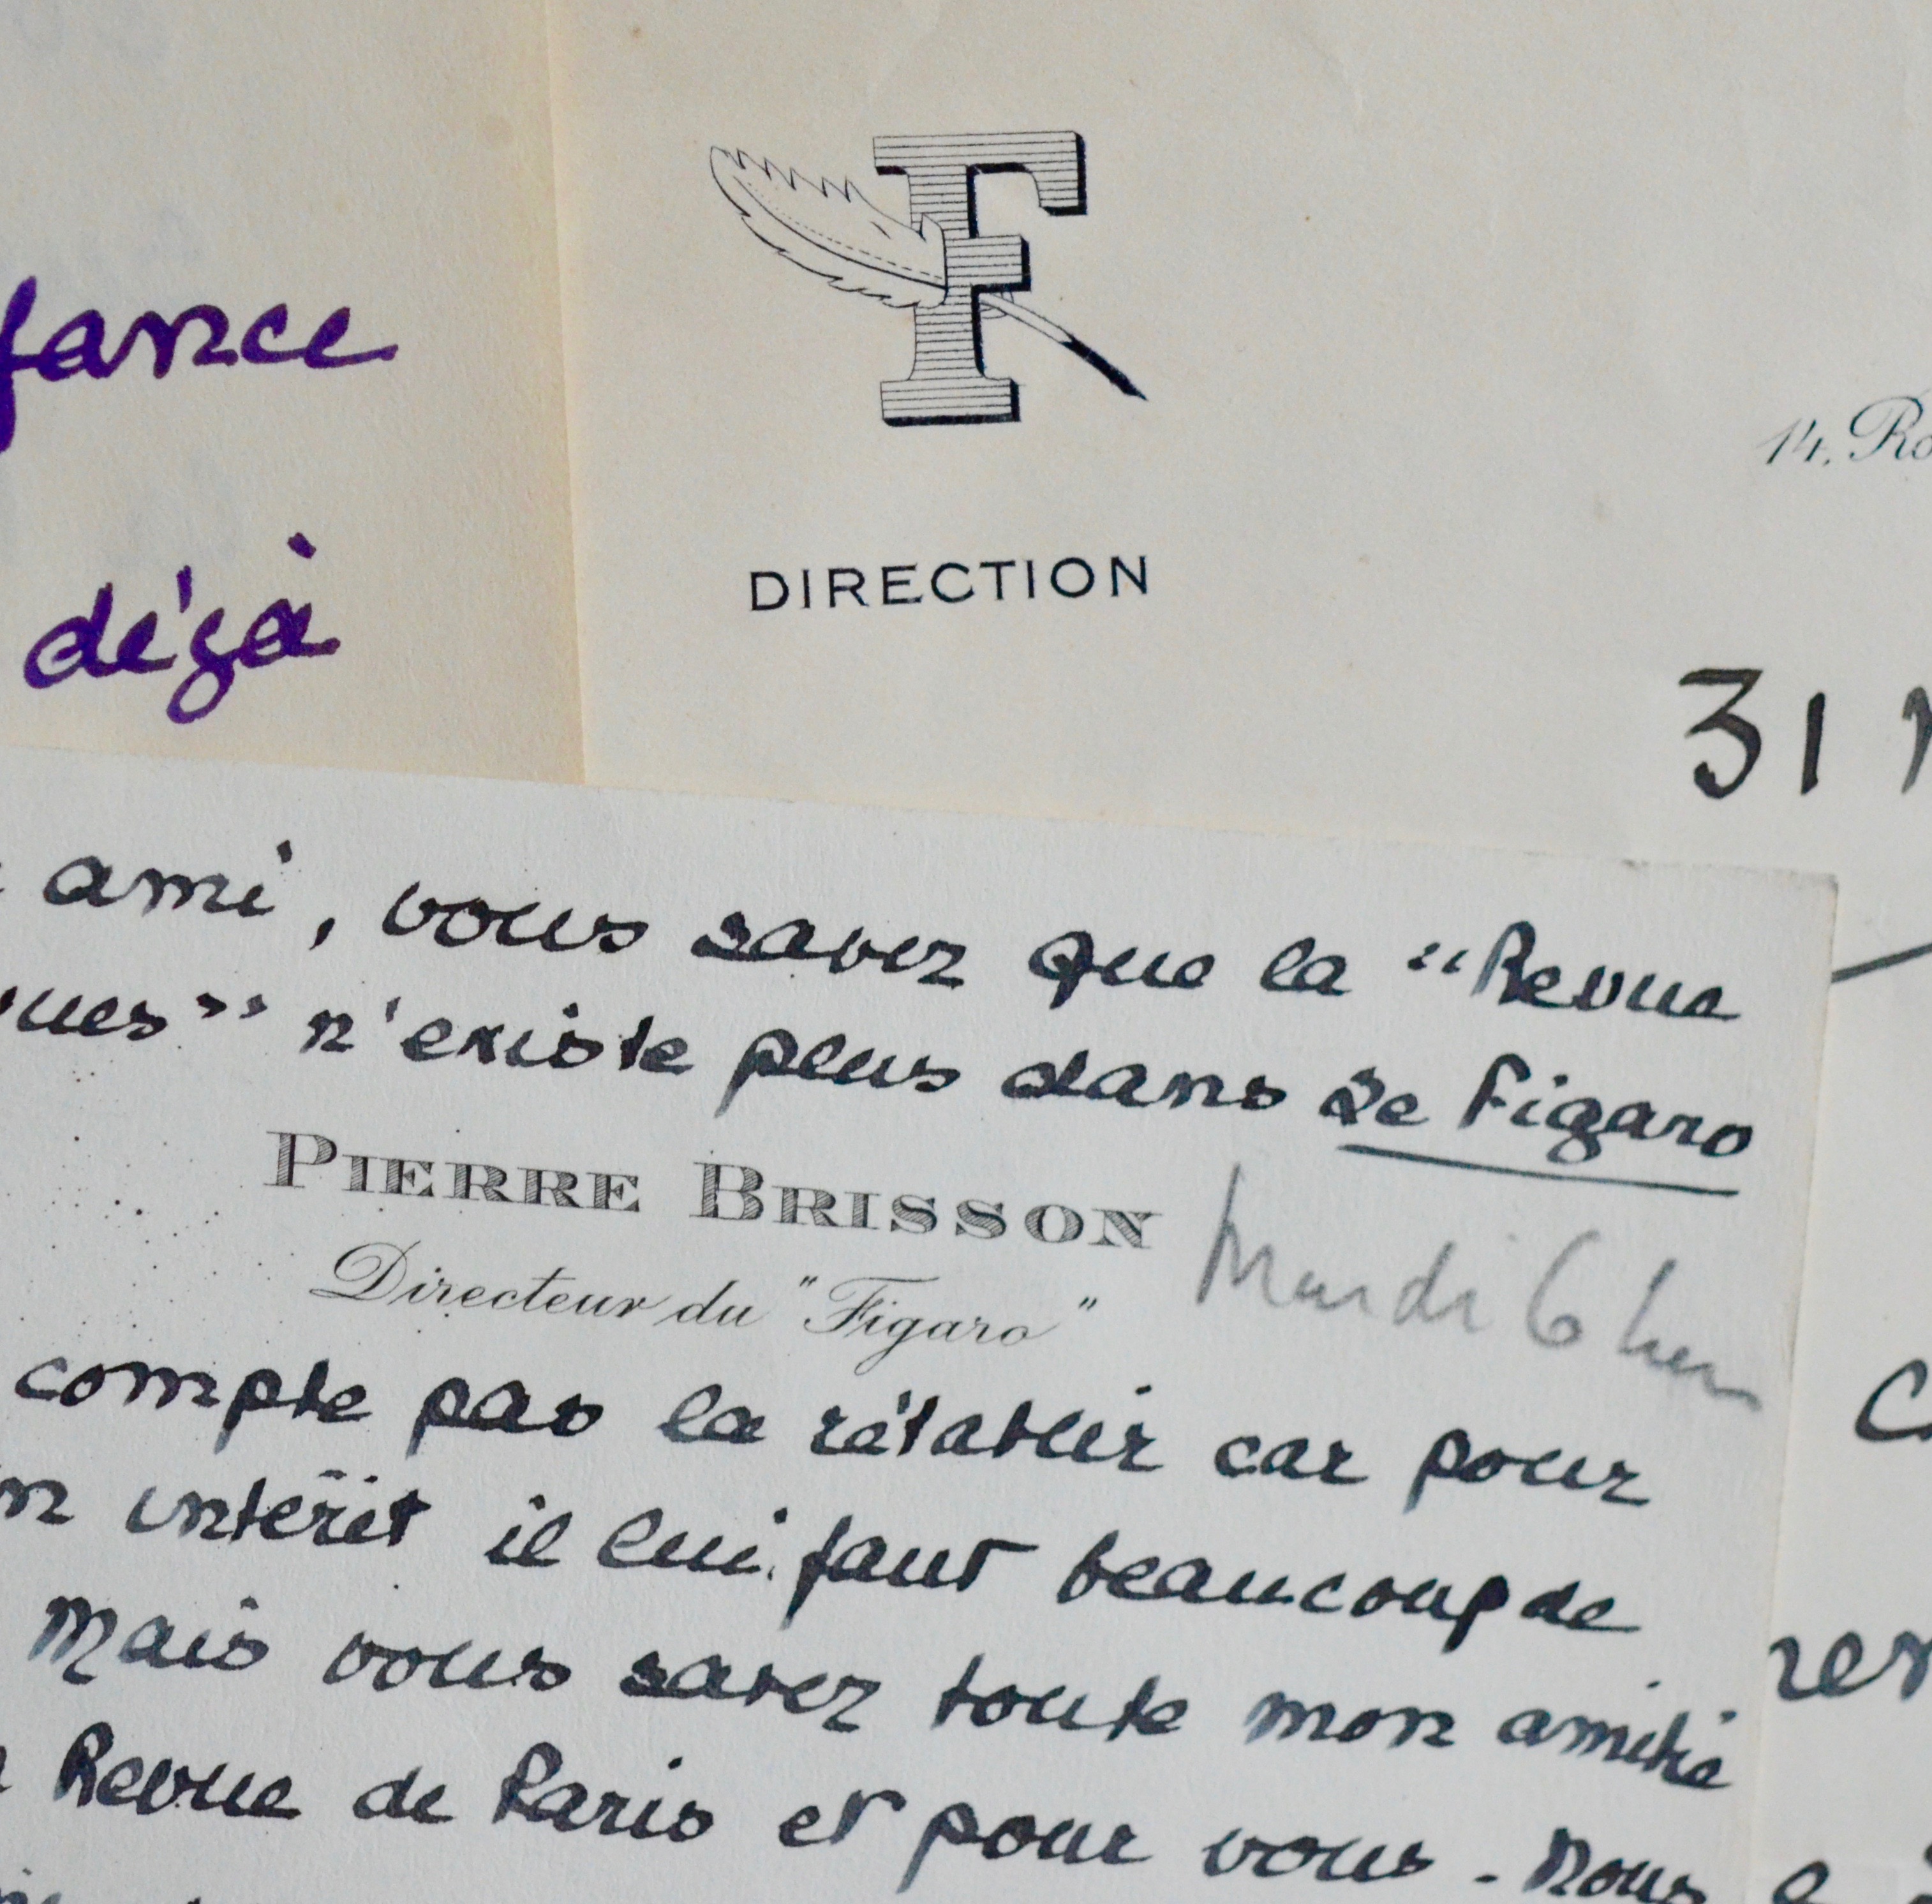 fance
déjà
F
DIRECTION
14, Ro
31
ami, vous savez que la "Revue
ues" n'existe plus dans Le Figaro
PIERRE BRISSON
Directeur du "Figaro"
Mardi 6
compte pas la rétablir car pour
intérêt il lui faut beaucoup de
Mais vous savez toute mon amitié
Revue de Paris et pour vous. Nous